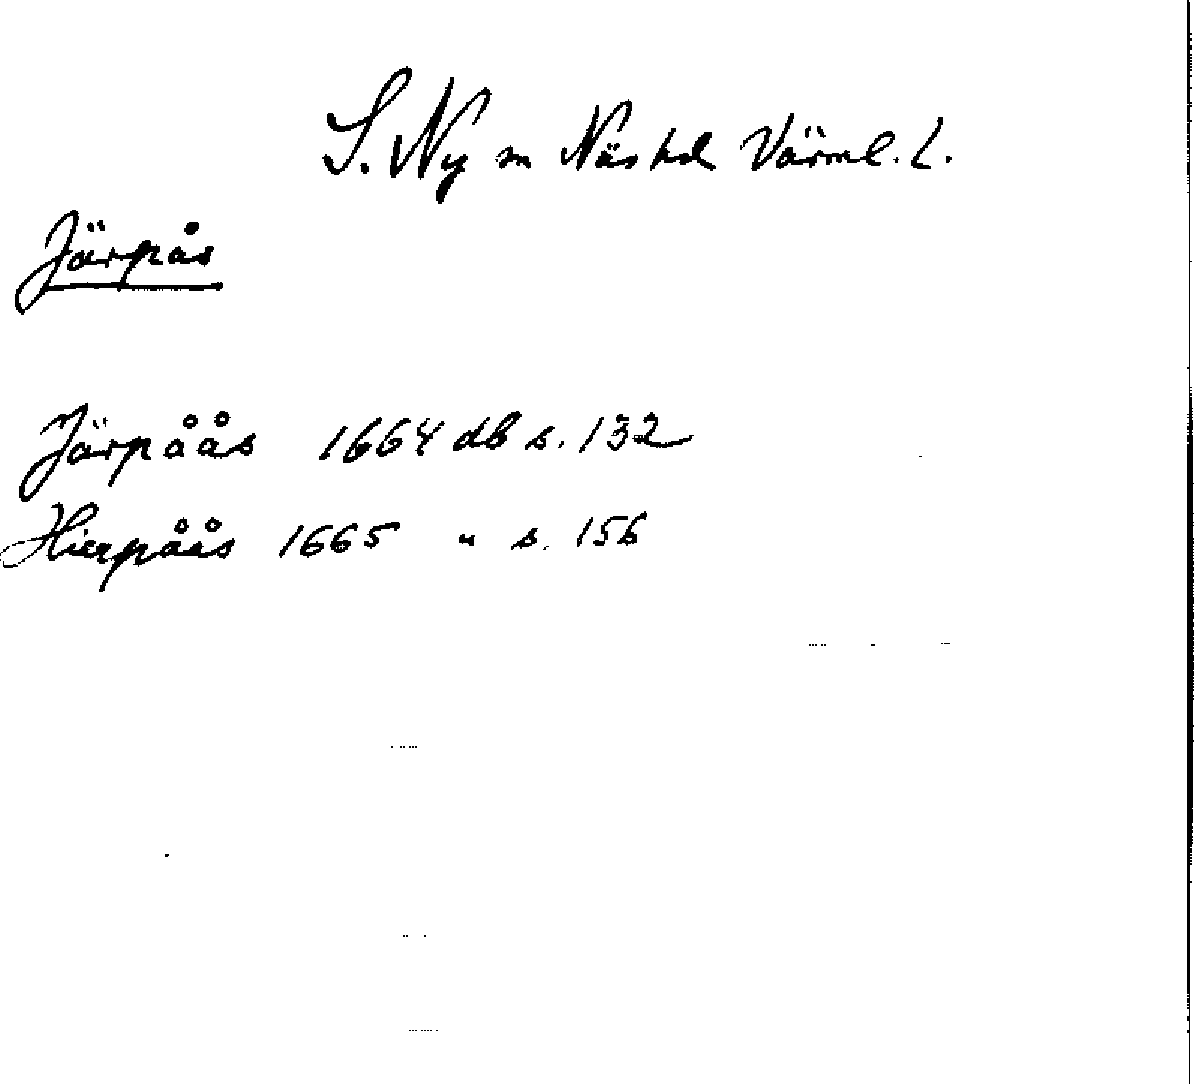 S. Ny sn Näs hd Värml. L.
Järpås
Järpåås 1664 db s. 132
Hierpåås 1665 " s. 156